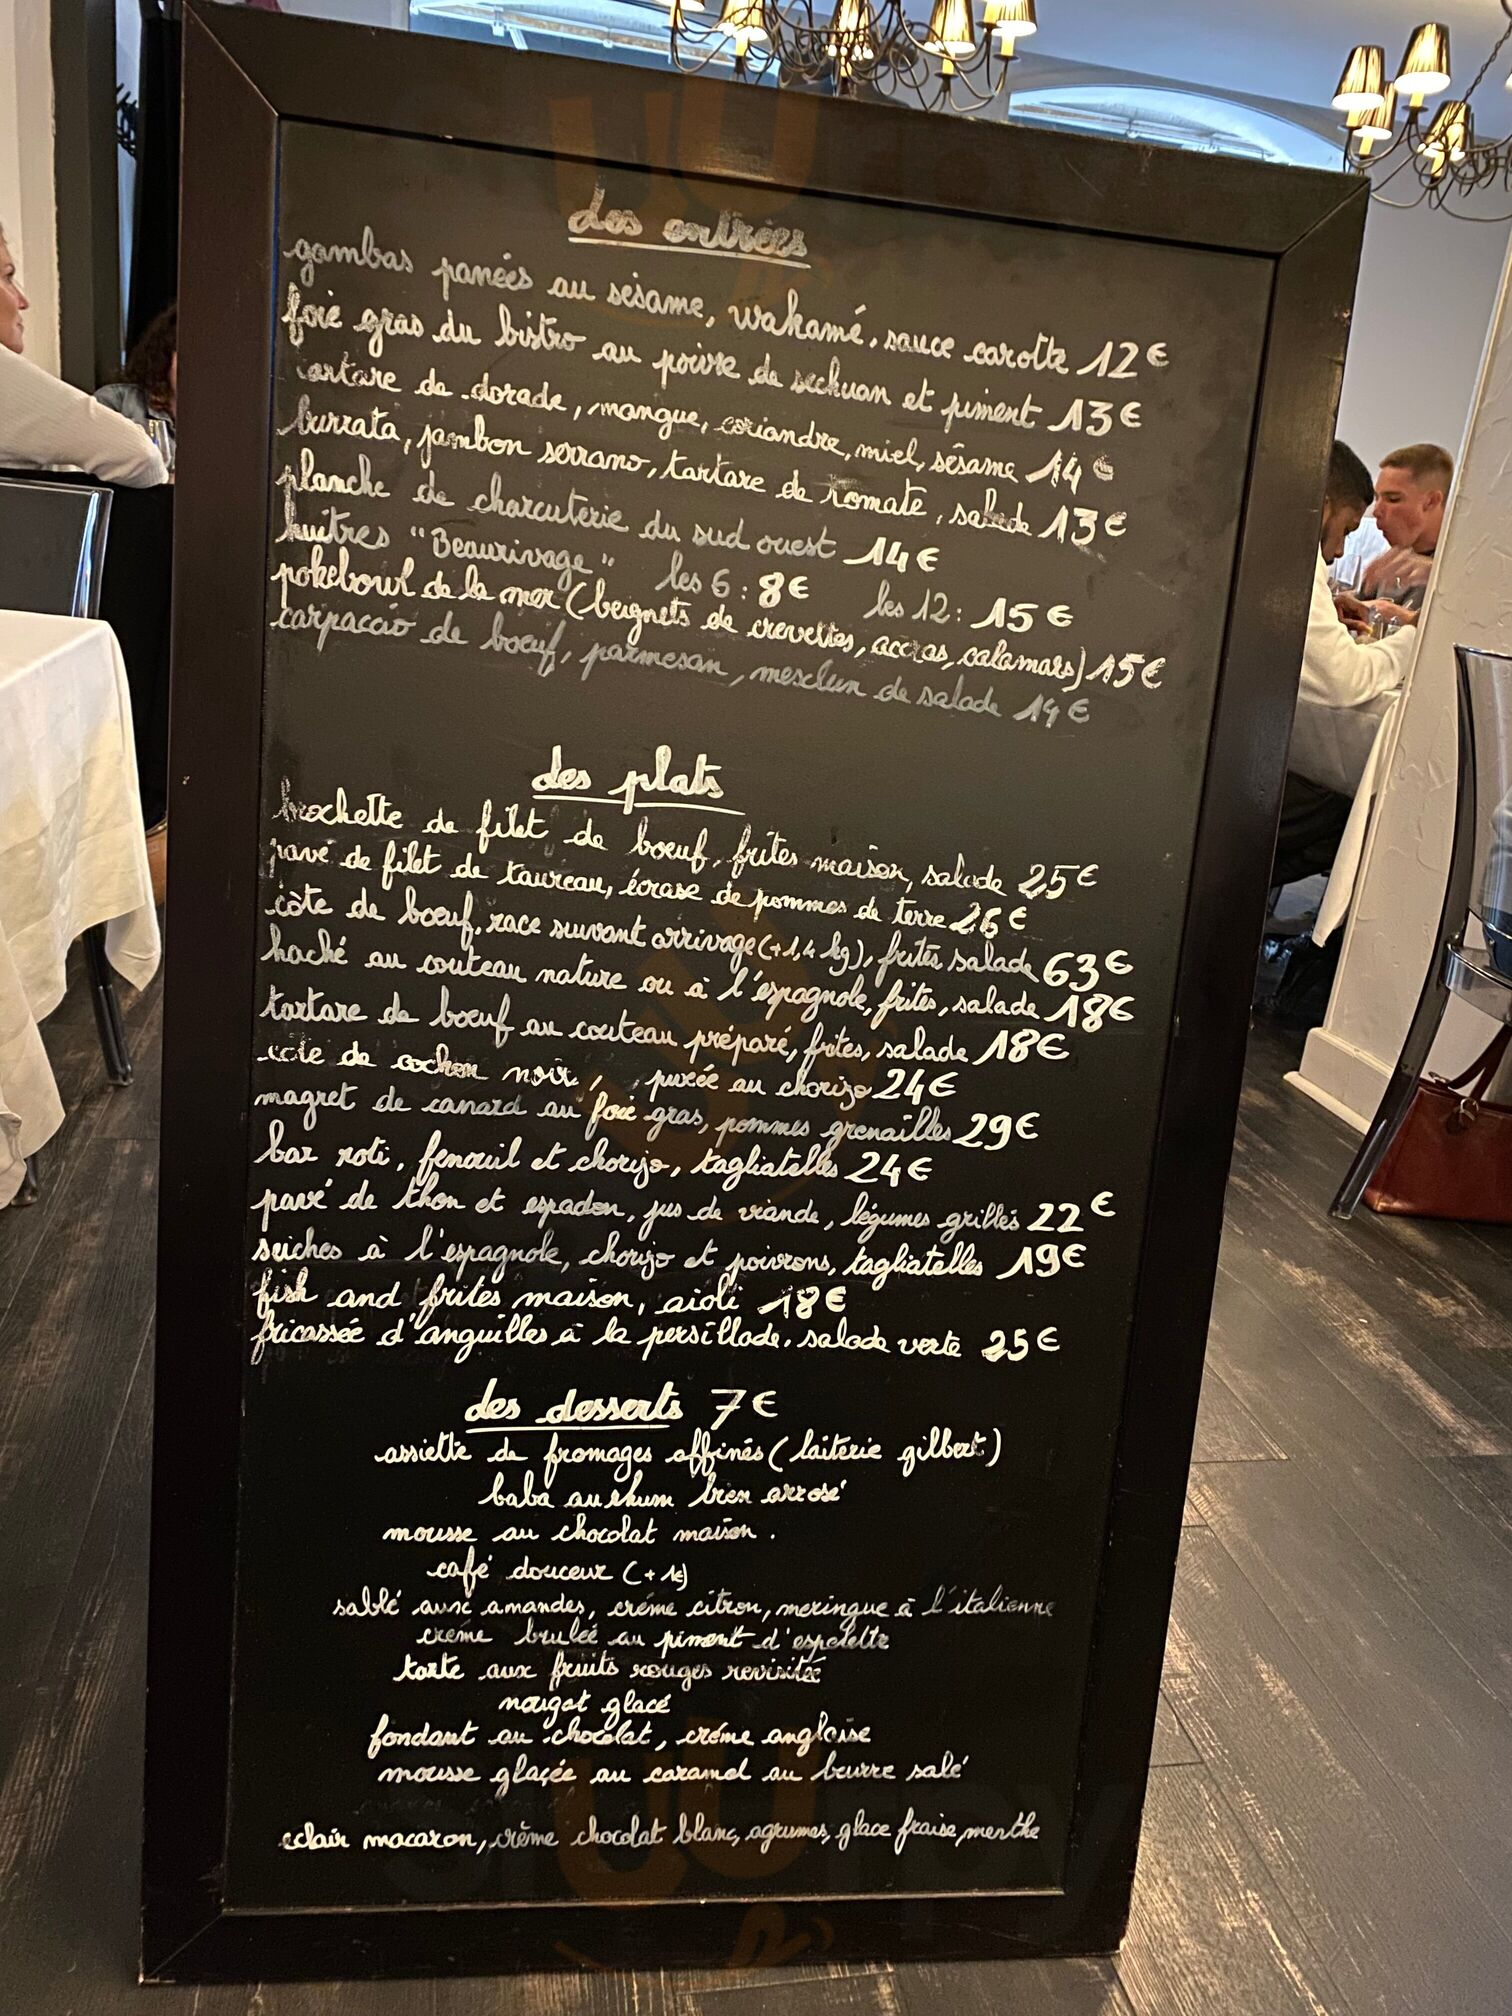 des entrées
gambas panées au sésame, wakamé, sauce carotte 12€
foie gras du bistro au poivre de sechuan et piment 13€
tartare de dorade, mangue, coriandre, miel, sésame 14€
burrata, jambon serrano, tartare de tomate, salade 13€
planche de charcuterie du sud ouest 14€
huîtres "Beaurivage" les 6: 8€ les 12: 15€
pokebowl de la mer (beignets de crevettes, accras, calamars) 15€
carpaccio de boeuf, parmesan, mesclun de salade 14€
des plats
brochette de filet de boeuf, frites maison, salade 25€
pavé de filet de taureau, écrase de pommes de terre 26€
côte de boeuf, race suivant arrivage (+1,4 kg), frites salade 63€
haché au couteau nature ou à l'espagnole, frites, salade 18€
tartare de boeuf au couteau préparé, frites, salade 18€
cote de cochon noir, purée au chorizo 24€
magret de canard au foie gras, pommes grenailles 29€
bar roti, fenouil et chorizo, tagliatelles 24€
pavé de thon et espadon, jus de viande, légumes grillés 22€
seiches à l'espagnole, chorizo et poivrons, tagliatelles 19€
fish and frites maison, aioli 18€
fricassée d'anguilles à la persillade, salade verte 25€
des desserts 7€
assiette de fromages affinés (laiterie gilbert)
baba au rhum bien arrosé
mousse au chocolat maison.
café douceur (+1€)
sablé aux amandes, crème citron, meringue à l'italienne
crème brulée au piment d'espelette
tarte aux fruits rouges revisitée
nougat glacé
fondant au chocolat, crème anglaise
mousse glaçée au caramel au beurre salé
eclair macaron, crème chocolat blanc, agrumes, glace fraise menthe